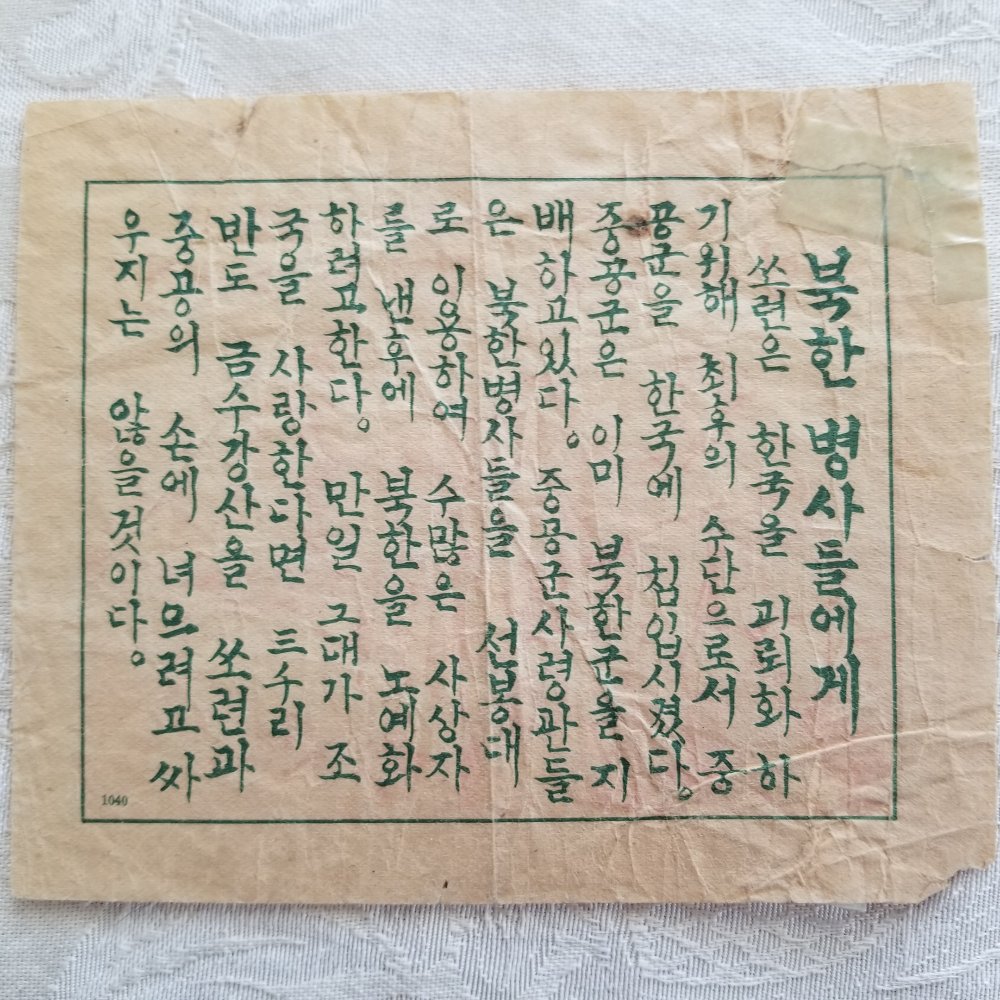 북한 병사들에게
쏘련은 한국을 괴뢰화하
기위해 최후의 수단으로서 중
공군을 한국에 침입시켰다。
중공군은 이미 북한군을 지
배하고있다。 중공군사령관들
은 북한병사들을 선봉대
로 이용하여 수많은 사상자
를 낸후에 북한을 노예화
하려고한다。 만일 그대가 조
국을 사랑한다면 三千리
반도 금수강산을 쏘련과
중공의 손에 녀으려고 싸
우지는 않을것이다。
1040